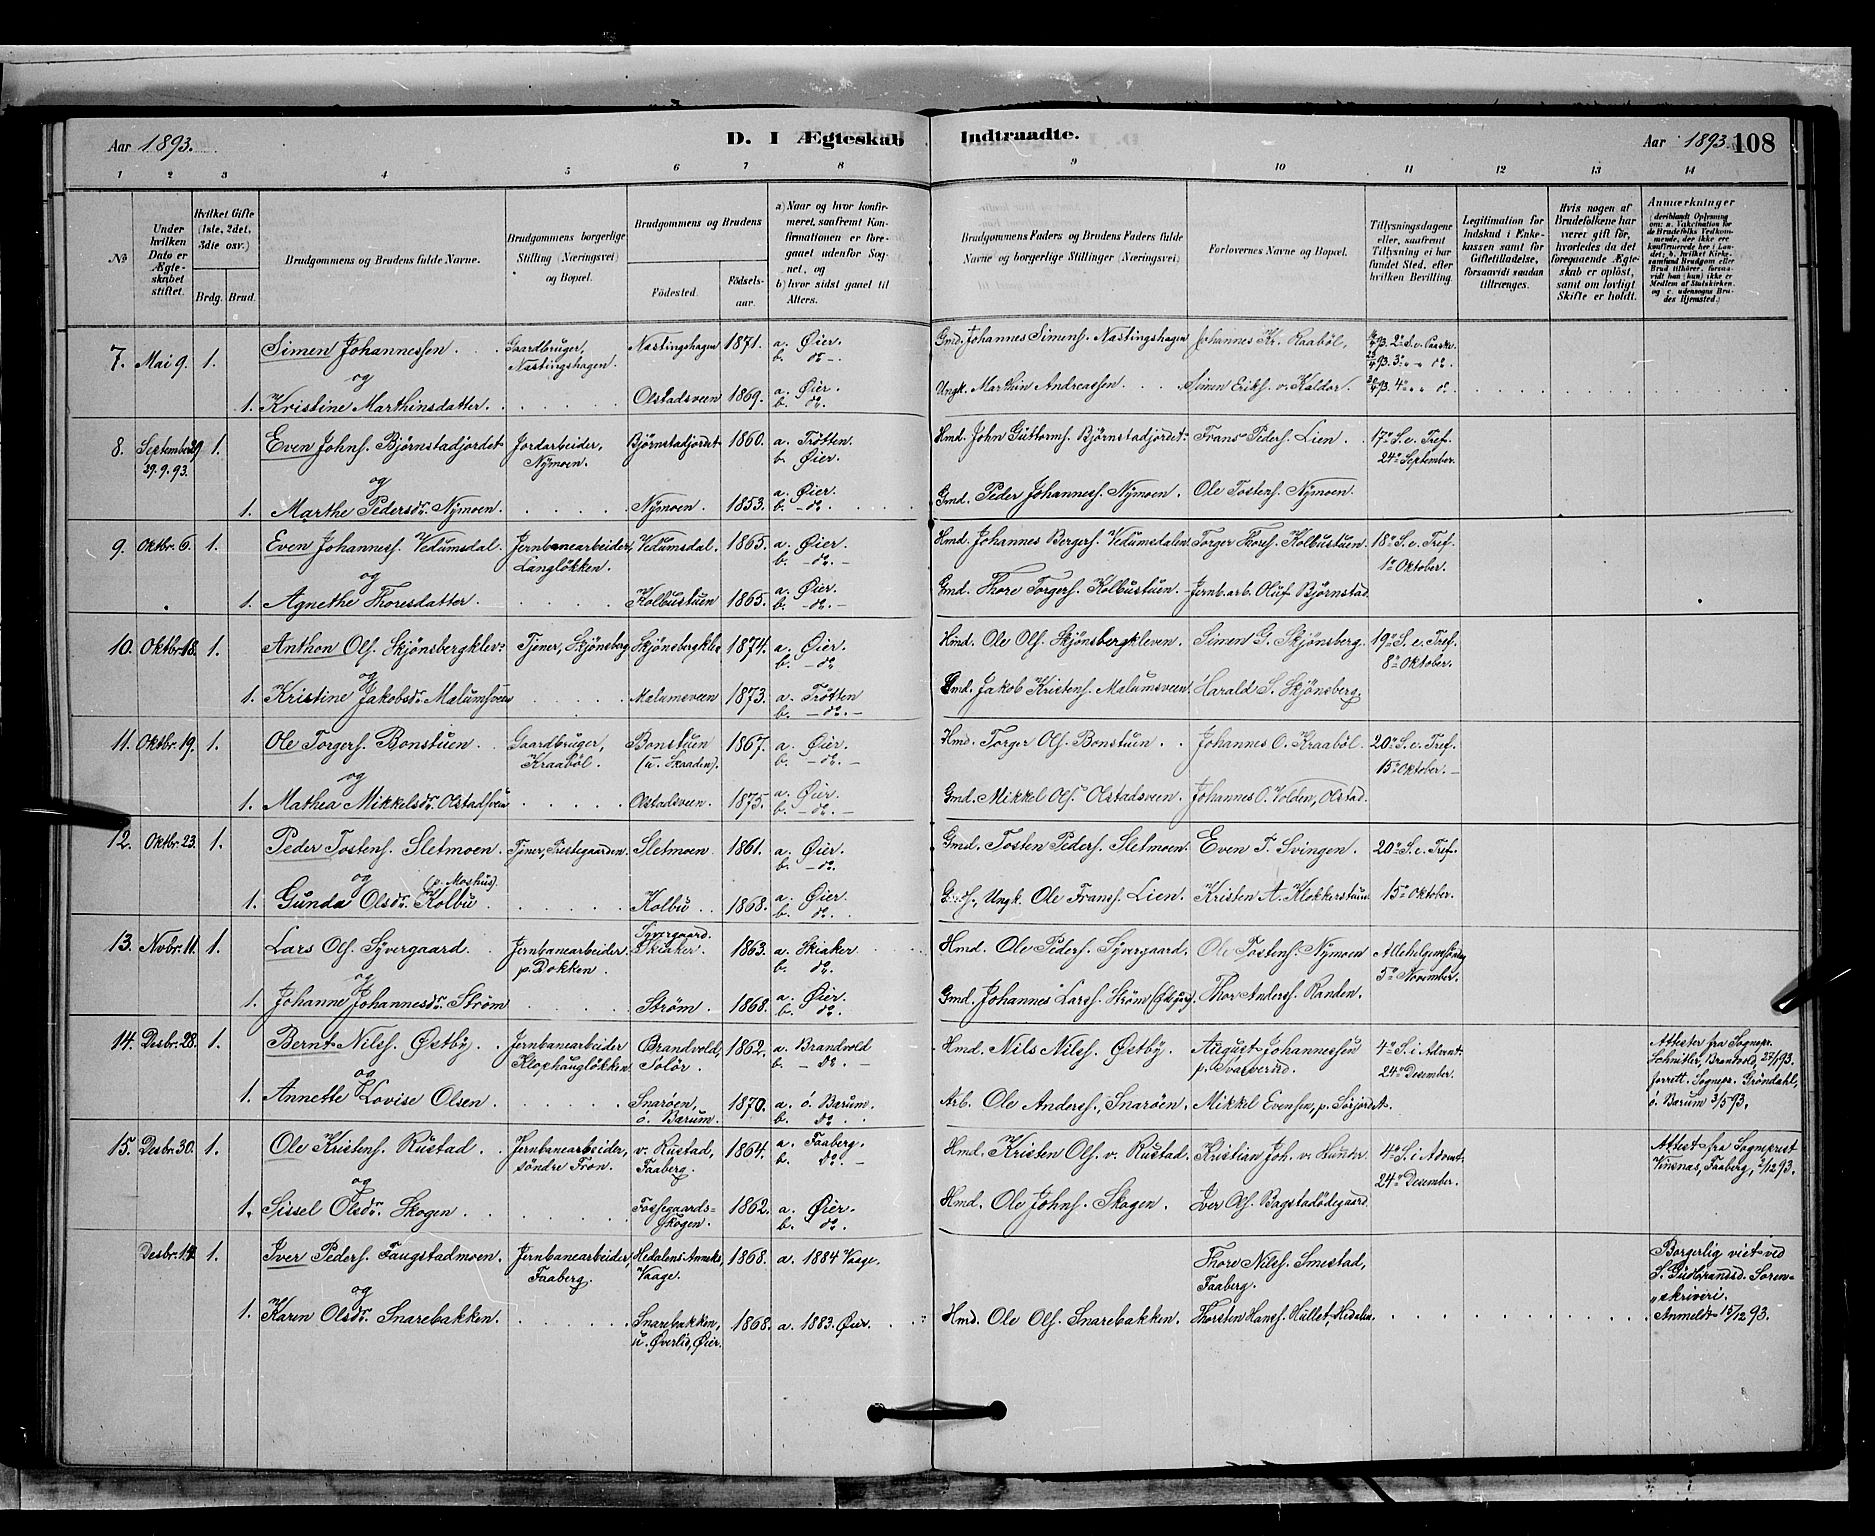 Aar 1893.
D. I Ægteskab Indtraadte.
Aar 1893. 108
1 2 3 4 5 6 7 8 9 10 11 12 13 14
No
Under hvilken Dato er Ægteskabet stiftet.
Hvilket Gifte (1ste, 2det, 3die osv.)
Brdg. Brud.
Brudgommens og Brudens fulde Navne.
Brudgommens borgerlige Stilling (Næringsvei) og Bopæl.
Brudgommens og Brudens
Fødested.
Fødselsaar.
a) Naar og hvor konfirmeret, saafremt Konfirmationen er foregaaet udenfor Sognet, og
b) hvor sidst gaaet til Alters.
Brudgommens Faders og Brudens Faders fulde Navne og borgerlige Stillinger (Næringsvei)
Forlovernes Navne og Bopæl.
Tillysningsdagene eller, saafremt Tillysning ei har fundet Sted, efter hvilken Bevilling.
Legitimation for Indskud i Enkekassen samt for Giftetilladelse, forsaavidt saadan tiltrænges.
Hvis nogen af Brudefolkene har været gift før, hvorledes da det foregaaende Ægteskab er opløst, samt om lovligt Skifte er holdt.
Anmærkninger (deriblandt Oplysning om: a. Vaccination for de Brudefolks Vedkommende, der ikke ere konfirmerede her i Landet; b. hvilket Kirkesamfund Brudgom eller Brud tilhører, forsaavidt han (hun) ikke er Medlem af Statskirken, og c. udensogns Brudes Hjemsted.)
7. Mai 9. 1. Simen Johannessen. Gaardbruger, Nastingshagen. Nastingshagen 1871. a. Øier. b. do Gmd. Johannes Simens. Nastingshagen Johannes Kr. Raabøl, 2den d. e. Paaske.
og
1. Kristine Marthinsdatter. Olstadsveen 1869. a. Øier. b. do. Ungk. Marthin Andreassen. Simen Eriks. v. Kaldor.
8. September 29 29.9.93. 1. Even Johns. Bjørnstadjordet Jordarbeider, Nymoen. Bjørnstadjordet 1860. a. Trøtten. b. Øier. Hmd. John Guttorms. Bjørnstadjordet Frans Peders. Lien. 17de S. e. Tref. 24de September.
og
1. Marthe Pedersdr. Nymoen. Nymoen. 1853. a. Øier. b. do. Gmd. Peder Johanness. Nymoen. Ole Tostens. Nymoen.
9. Oktbr. 6. 1. Even Johanness. Vedumsdal. Jernbanearbeider, Langløkken. Vedumsdal. 1865. a. Øier. b. do. Hmd. Johannes Bergers. Vedumsdalen. Torger Thores. Kolbustuen. 18de S. e. Tref. 1ste Oktober.
og
1. Agnethe Thoresdatter. Kolbustuen 1865. a. Øier. b. do. Gmd. Thore Torgers. Kolbustuen. Jernb. arb. Oluf Bjørnstad.
10. Oktbr. 18. 1. Anthon Ols. Skjønsbergklev. Tjener, Skjønsberg Skjønsbergklev 1874. a. Øier. b. do. Hmd. Ole Ols. Skjønsbergkleven. Simen G. Skjønsberg. 19de S. e. Tref. 8de Oktober.
og
1. Kristine Jakobsdr. Malumsveen Malumsveen 1873. a. Trøtten b. do. Gmd. Jakob Kristens. Malumsveen. Harald S. Skjønsberg.
11. Oktbr. 19. 1. Ole Torgers. Bonstuen. Gaardbruger, Kraabøl. Bonstuen (u. Skaaden). 1867. a. Øier. b. do. Hmd. Torger Ols. Bonstuen. Johannes O. Kraabøl. 20de S. e. Tref. 15de Oktober.
og
1. Mathea Mikkelsdr. Olstadsveen Olstadsveen. 1875. a. Øier. b. do. Gmd. Mikkel Ols. Olstadsveen. Johannes O. Volden, Olstad.
12. Oktbr. 23. 1. Peder Tostens. Sletmoen. Tjener, Prestegaarden. Sletmoen. 1861. a. Øier. b. do. Gmd. Tosten Peders. Sletmoen. Even T. Svingen. 20de S. e. Tref.
og (p. Moshus).
1. Gunda Olsdr. Kolbu. Kolbu. 1868. a. Øier. b. do. Ungk. Ole Franss. Lien. Kristen A. Klokkerstuen 15de Oktober.
13. Novbr. 11. 1. Lars Ols. Syvergaard. Jernbanearbeider p. Dokken. Syvergaard. Skiaker. 1863. a. Skiaker b. do. Hmd. Ole Peders. Syvergaard. Ole Tostens. Nymoen Allehelgens 5te November.
og
1. Johanne Johannesdr. Strøm Strøm. 1868. a. Øier. b. do. Gmd. Johannes Larss. Strøm. Thor Anderss. Randen.
14. Desbr. 28. 1. Bernt Nilss. Østby. Jernbanearbeider Klophaugløkken. Brandvold, Solør. 1862. a. Brandvold b. do. Hmd. Nils Nilss. Østby. August Johannessen p. Svarverud. 4de S. i Advent. 24de Desember. Attester fra Sognepr. Schnitler, Brandvold, 27/1 93. forrett. Sognepr. Grøndahl, ø. Barum 3/5 93.
og
1. Annette Lovise Olsen. Snarøen, ø. Barum. 1870. a. ø. Barum. b. do. Arb. Ole Anderss., Snarøen. Mikkel Evensen, p. Sørjordet.
15. Desbr. 30. 1. Ole Kristens. Rustad. Jernbanearbeider, søndre Fron. v. Rustad, Faaberg. 1864. a. Faaberg. b. do. Hmd. Kristen Ols. v. Rustad. Kristian Joh. v. Hunder. 4de S. i Advent. 24de Desember. Attest fra Sogneprest Vinsnas, Faaberg, /12 93.
og
1. Sissel Olsdr. Skogen. Fossegaards-Skogen. 1862. a. Øier. b. do. Hmd. Ole Johns. Skogen. Iver Ols. Bagstadødegaard.
Desbr. 14. 1. Iver Peders. Faugstadmoen. Jernbanearbeider, Faaberg. Hedalens Anneks, Vaage. 1868. a. 1884 Vaage. Thore Nilss. Smestad, Faaberg. Borgerlig viet ved S. Gudbrandsd. Sorenskriveri. Anmeldt 15/12 93.
og
1. Karen Olsdr. Snarebakken. Snarebakken, u. Øverlid, Øier. 1868. a. 1883. Øier. Hmd. Ole Ols. Snarebakken. Thorsten Hanss. Hullet, Hedalen.